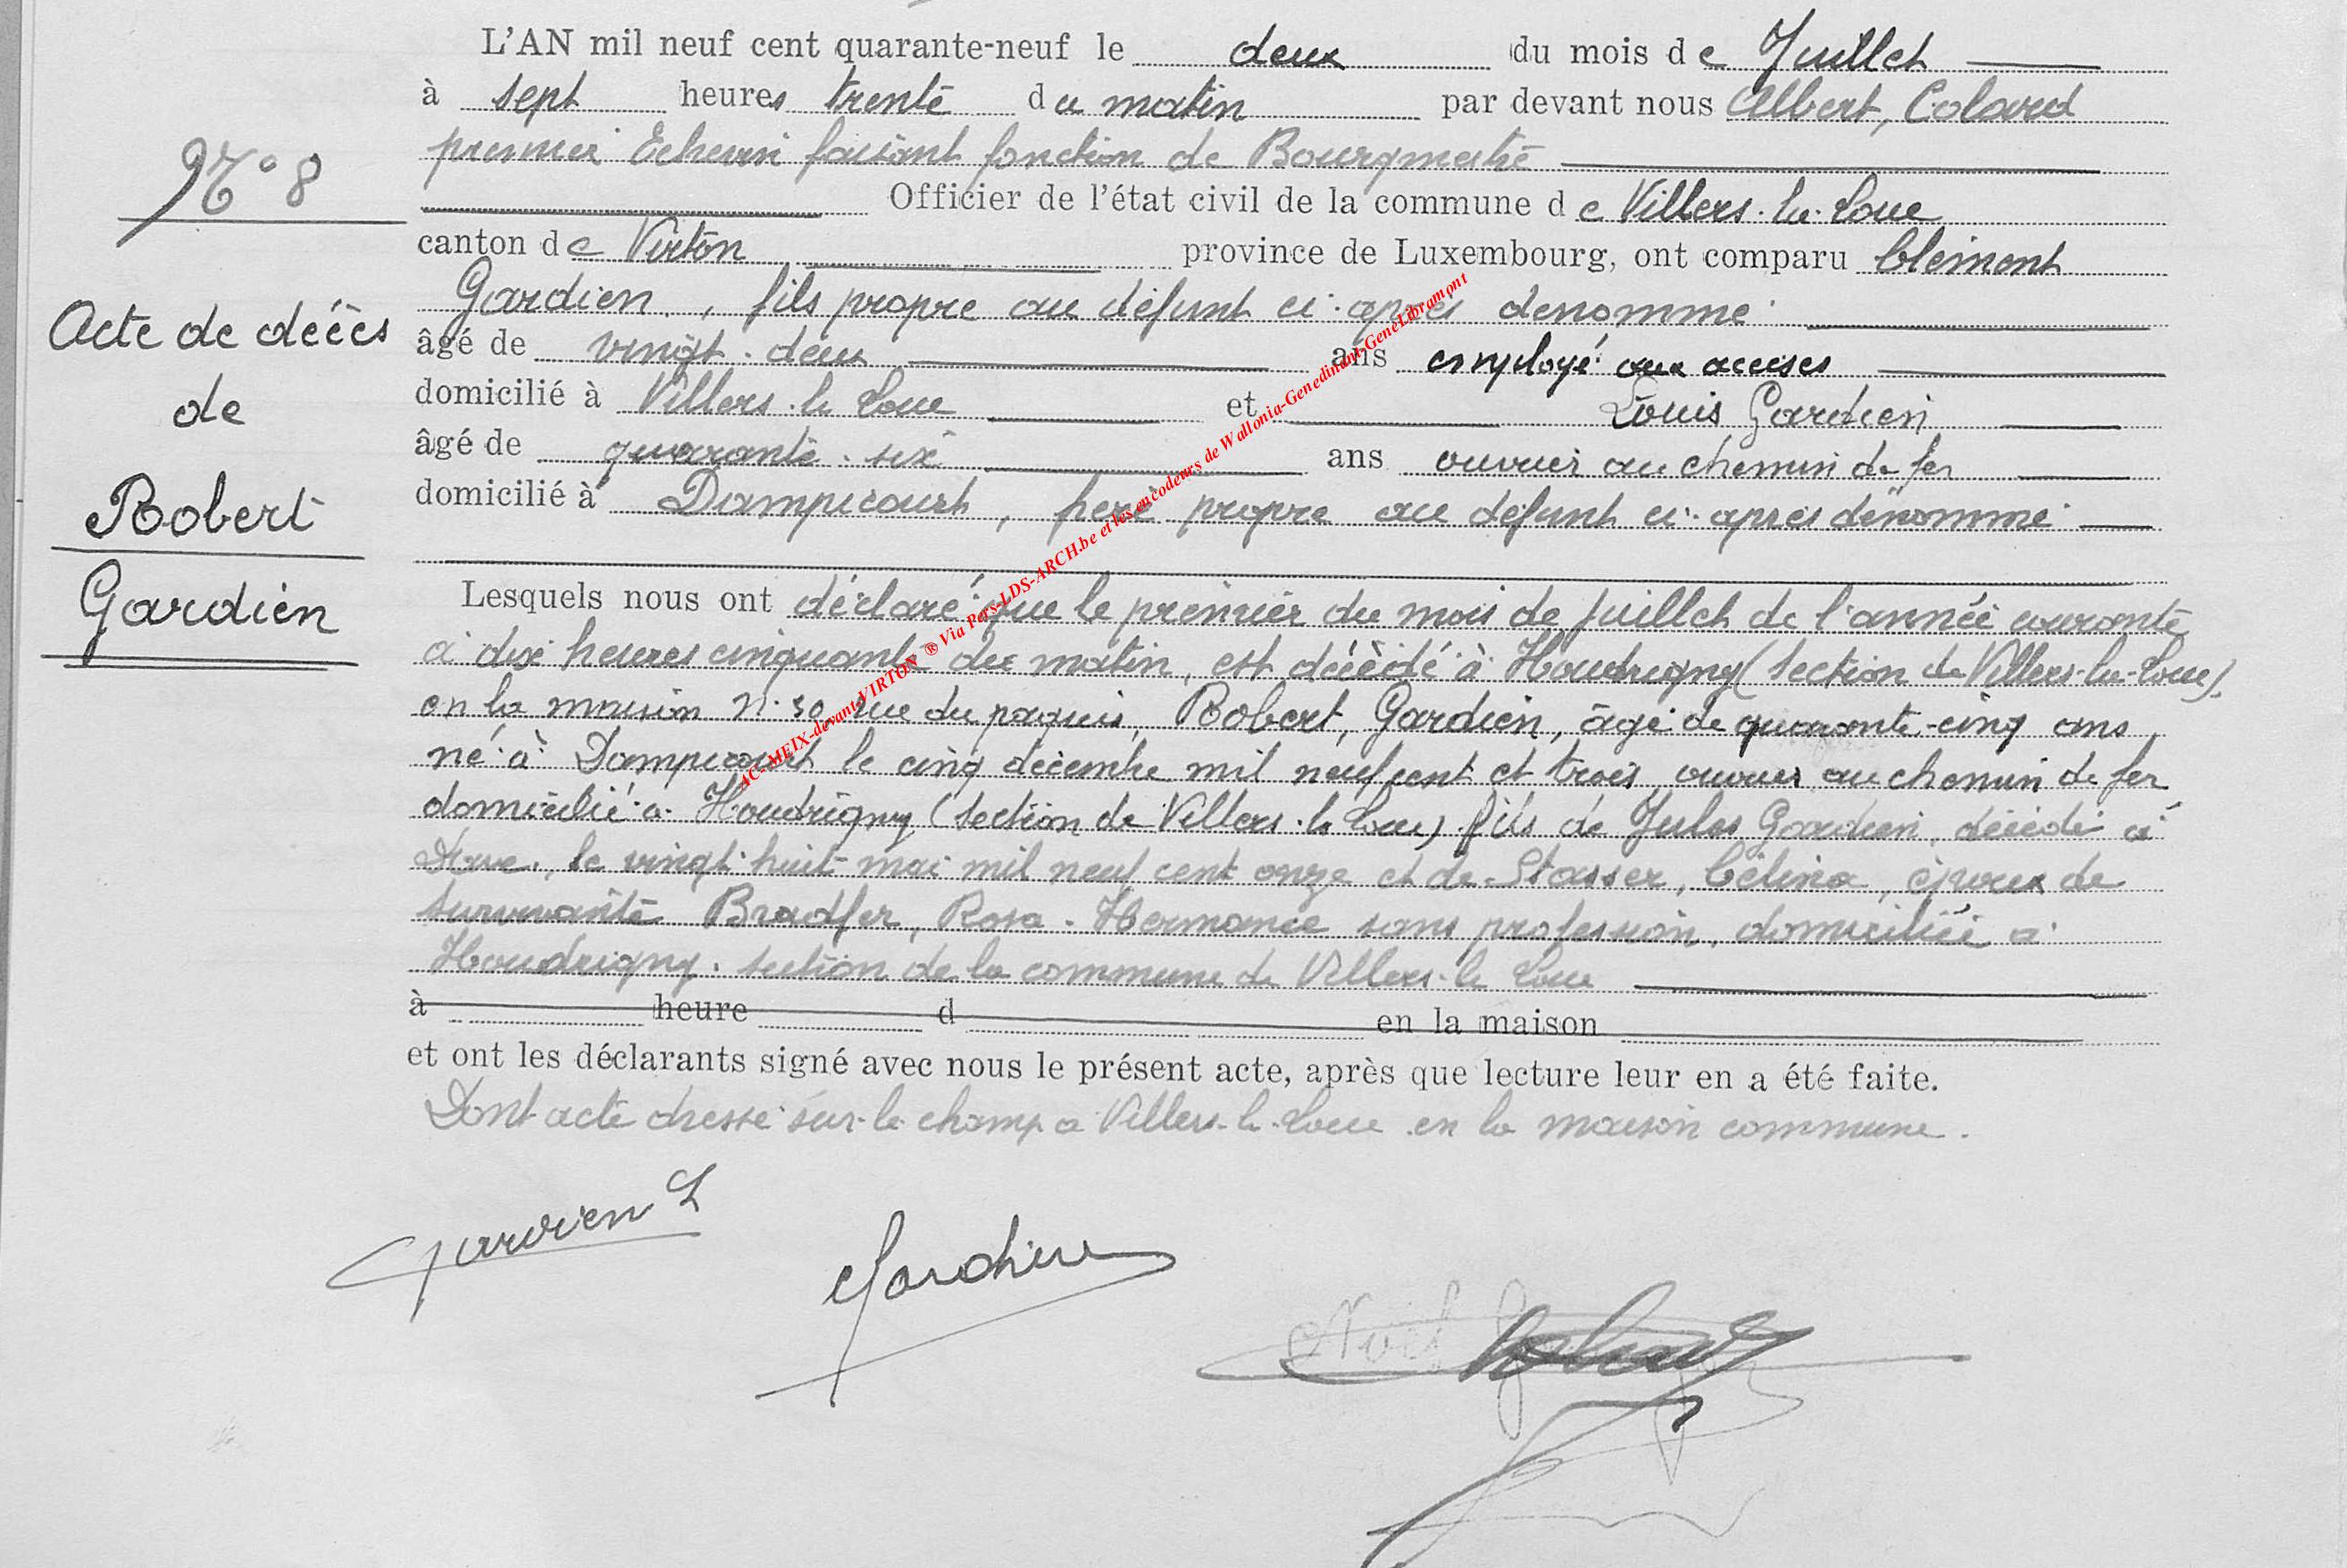 L'AN mil neuf cent quarante-neuf le deux du mois de Juillet
à sept heures trente du matin par devant nous Albert, Colard
premier Echevin faisant fonction de Bourgmestre
N° 8
Officier de l'état civil de la commune de Villers-la-Loue
canton de Virton province de Luxembourg, ont comparu Clément
Gardien, fils propre au défunt ci-après dénommé
Acte de décès
de
Robert
Gardien
âgé de vingt-deux ans employé aux accises
domicilié à Villers-la-Loue et Louis Gardien
âgé de quarante-six ans ouvrier au chemin de fer
domicilié à Dampicourt, frère propre au défunt ci-après dénommé
Lesquels nous ont déclaré que le premier du mois de juillet de l'année courante
à dix heures cinquante du matin, est décédé à Houdrigny (section de Villers-la-Loue)
en la maison n° 30 rue du paquis, Robert, Gardien, âgé de quarante-cinq ans
né à Dampicourt le cinq décembre mil neuf cent et trois, ouvrier au chemin de fer
domicilié à Houdrigny (section de Villers-la-Loue) fils de Jules Gardien, décédé à
le vingt-huit mai mil neuf cent onze et de Stasser, Célina, époux de
survivante Bradfer, Rosa-Hermance sans profession, domiciliée à
Houdrigny, section de la commune de Villers-la-Loue
à heure d en la maison
et ont les déclarants signé avec nous le présent acte, après que lecture leur en a été faite.
Dont acte dressé sur-le-champ à Villers-la-Loue en la maison commune.
Gardien L
Gardien
AC-MEIX-devant-VIRTON ® Via Pers-LDS-ARCH.be et les encodeurs de Wallonia-Genedinant-GeneLibramont